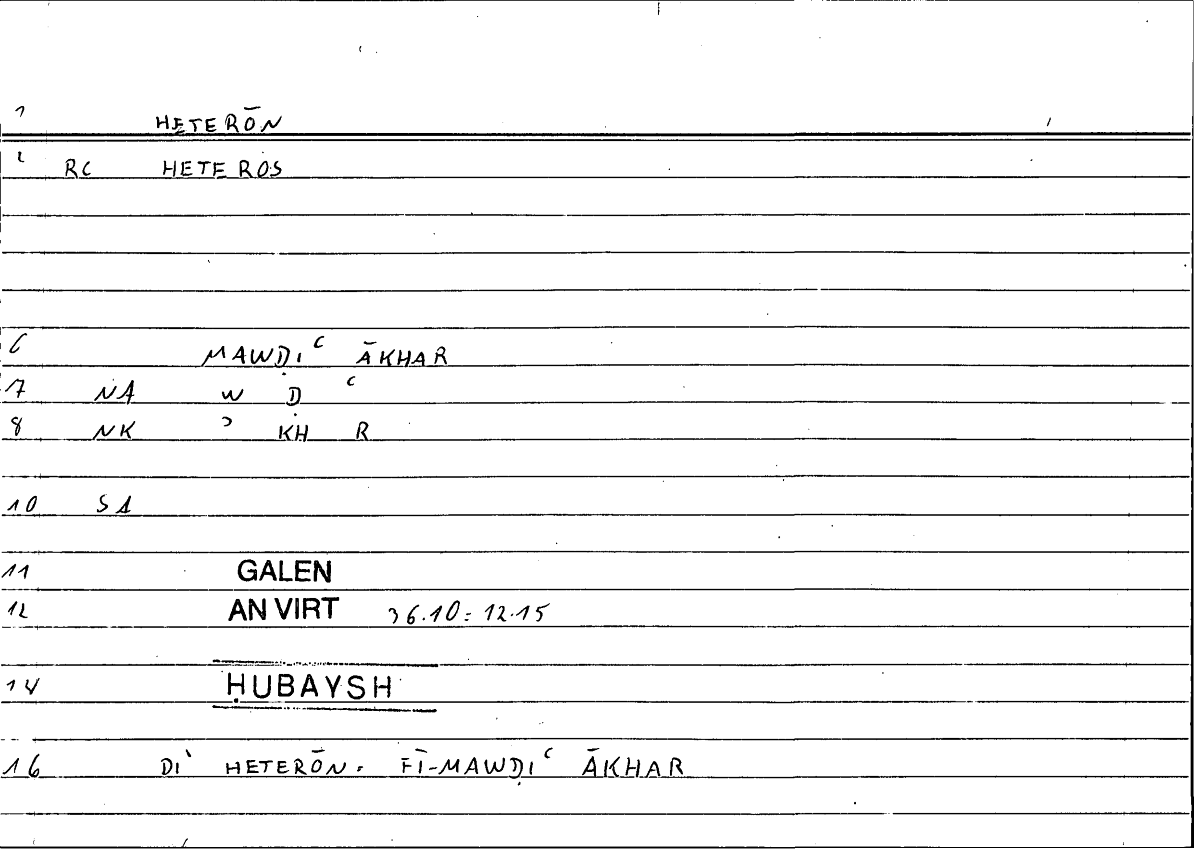 1 HETERŌN
2 RC HETEROS
6 MAWḌIʿ ĀKHAR
7 NA W Ḍ ʿ
8 NK ʾ KH R
10 SA
11 GALEN
12 AN VIRT 36.10: 12.15
14 ḤUBAYSH
16 DI' HETERŌN: FĪ-MAWḌIʿ ĀKHAR